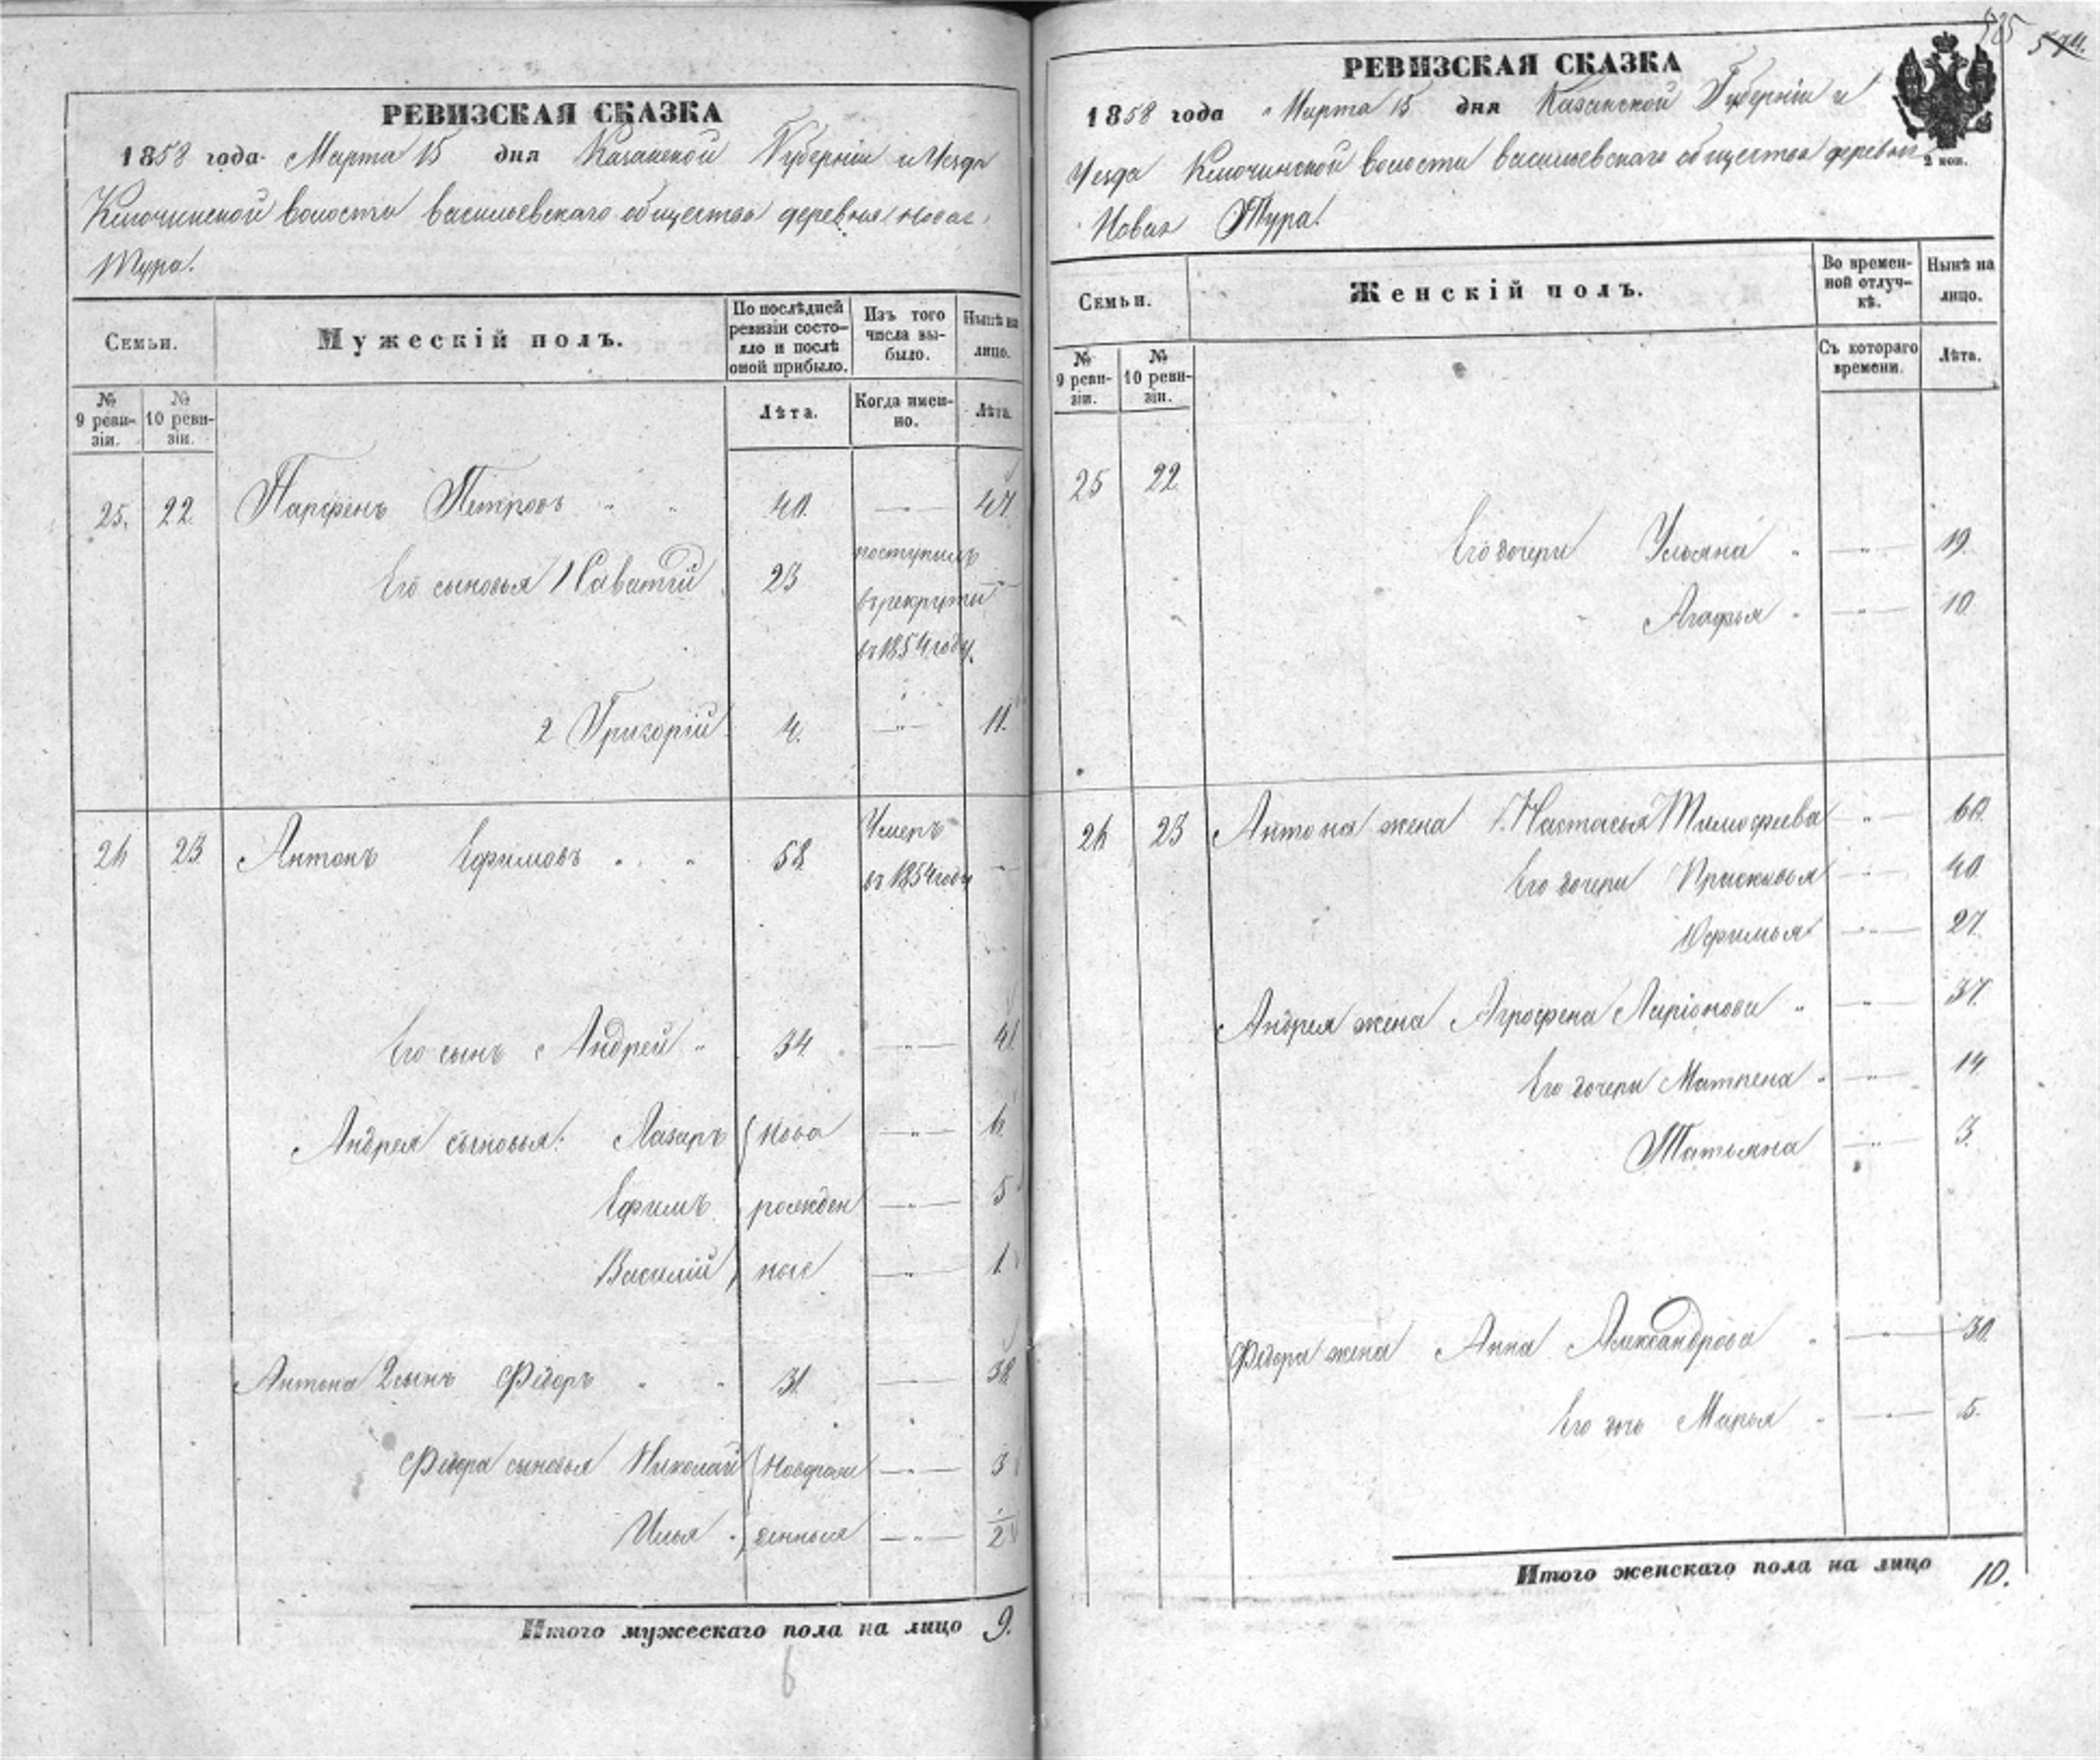 РЕВИЗСКАЯ СКАЗКА
1858 года Марта 15 дня Казанской Губернiи и Уезда
Ключинской волости васильевскаго общества деревня новая
Тура.
Семьи.
Мужескiй полъ.
По послѣдней ревизiи состояло и послѣ оной прибыло.
Изъ того числа выбыло.
Нынѣ на лицо.
№ 9 ревизiи.
№ 10 ревизiи.
Лѣта.
Когда именно.
Лѣта.
25. 22. Парфенъ Петровъ 40. 47.
Его сыновья 1 Саватiй 23 поступилъ
въ рекруты
въ 1854 году.
2 Григорiй 4. 11.
26 23. Антонъ Ефимовъ 58. Умеръ
въ 1854 году
Его сынъ Андрей 34. 41.
Андрея сыновья: Лазарь ново 6.
Ефимъ рожден 5
Василiй ные 1.
Антона 2 сынъ Фёдоръ 31. 38.
Фёдора сыновья Николай Новорож 3
Илья денныя 1/2
Итого мужескаго пола на лицо 9.
6
РЕВИЗСКАЯ СКАЗКА
574.
1858 года Марта 15 дня Казанской Губернiи и
2 коп.
Уезда Ключинской волости васильевскаго общества деревня
Новая Тура.
Семьи.
Женскiй полъ.
Во временной отлучкѣ.
Нынѣ на лицо.
№ 9 ревизiи.
№ 10 ревизiи.
Съ котораго времени.
Лѣта.
25 22.
Его дочери Ульяна 19.
Агафья 10.
26. 23 Антона жена Настасья Тимофеева 60.
Его дочери Прасковья 40.
Офимья 27.
Андрея жена Агрофена Ларiонова 37.
Его дочери Матрена 14
Татьяна 3.
Фёдора жена Анна Александрова 30.
Его дочь Марья 5.
Итого женскаго пола на лицо 10.